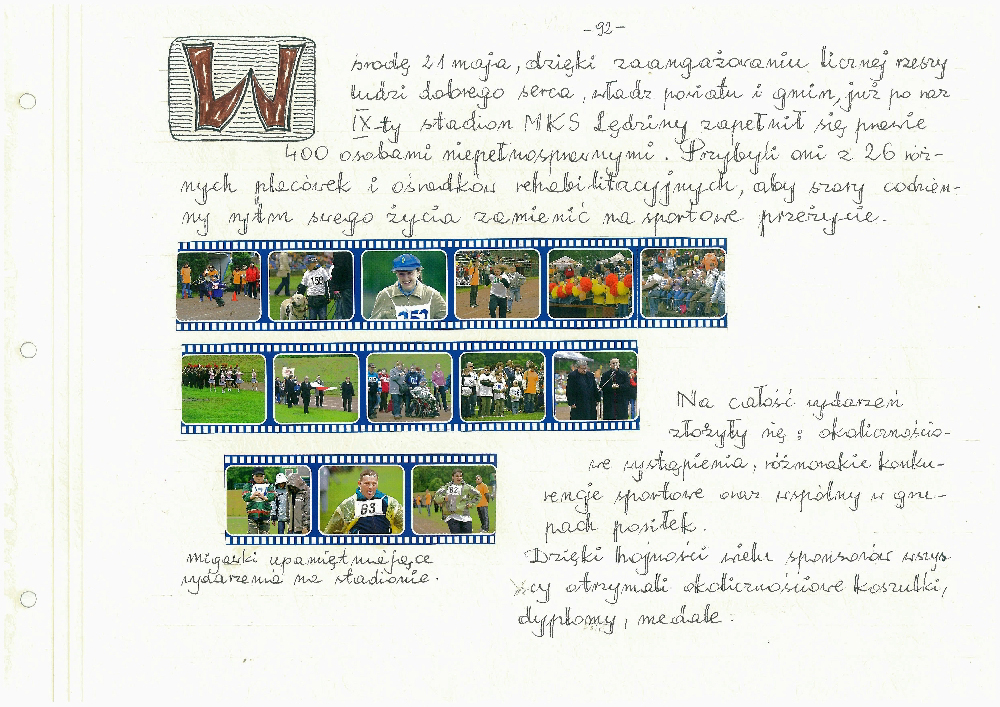 -92-
W środę 21 maja, dzięki zaangażowaniu licznej rzeszy
ludzi dobrego serca, władz powiatu i gmin, już po raz
IX-ty stadion MKS Lędziny zapełnił się prawie
400 osobami niepełnosprawnymi. Przybyli oni z 26 róż-
nych placówek i ośrodków rehabilitacyjnych, aby szary codzien-
ny rytm swego życia zamienić na sportowe przeżycie.
159
Na całość wydarzeń
złożyły się: okolicznościo-
we wystąpienia, różnorakie konku-
rencje sportowe oraz wspólny w gru-
pach posiłek.
63
82
migawki upamiętniające
wydarzenia na stadionie.
Dzięki hojności wielu sponsorów wszys-
cy otrzymali okolicznościowe koszulki,
dyplomy, medale.